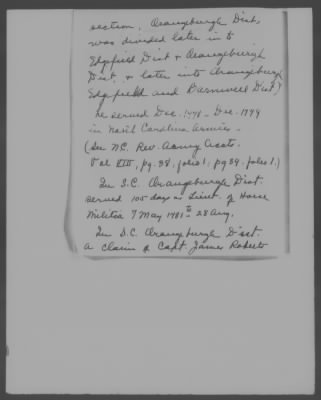 section, Orangeburgh Dist,
was divided later in to
Edgefield Dist & Orangeburgh
Dist. & later into Orangeburg
Edgefield and Barnwell Dist)
he served Dec. 1778 - Dec. 1779
in North Carolina Armies -
(See N.C. Rev. Army Accts.
Vol VIII, pg. 98, folio 1; pg 39. folio 1.)
In S.C. Orangeburgh Dist.
served 100 days as Lieut. of Horse
Militia 7 May 1781 to 28 Aug.
In S.C. Orangeburgh Dist.
a claim of Capt. James Roberts